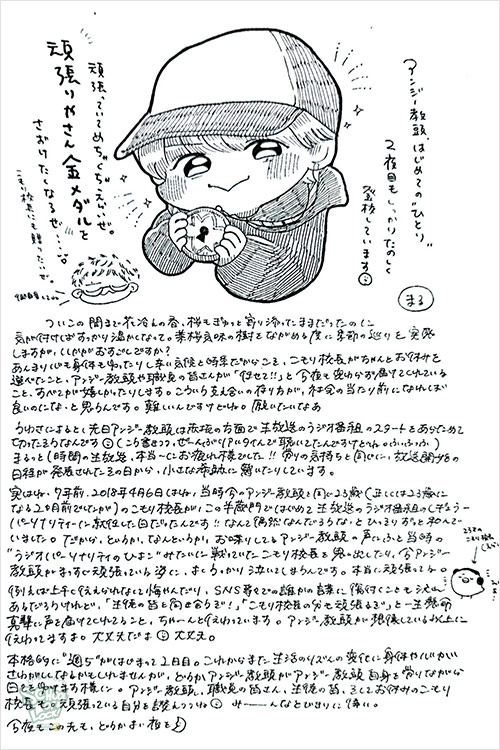 アンジー教頭、はじめての"ひとり"
2夜目もしっかりたのしく
登校しています☺
頑張っていてめちゃくちゃえらいぜ。
頑張りやさん金メダルを
さずけたくなるぜ……。
こもり校長にも贈りたいぜ。
まる
ついこの間まで花冷えの春、桜もぎゅっと寄り添ったままだったのに
気が付けばすっかり温かくなって。葉桜気味の樹をながめる度に季節の巡りを実感
しますが、いかがおすごしですか?
あんまり心も身体もゆったりし辛い気候と時季だからこそ、こもり校長がちゃんとお休みを
選べたこと、アンジー教頭や職員の皆さんが「任せて!!」と今夜も変わらずお届けてくれている
こと、すべてが嬉しかったりします。こういう支え合いの在り方が、社会の当たり前になれれば
良いのになぁ と思うんです。難しいんですけどね。願いたいなぁ
うわさによると先日アンジー教頭は夜の方面で生放送のラジオ番組のスタートをあらためて
切ったようなんです☺
まるっと1時間の生放送、本当〜にお疲れ様でした!!
日程が発表されたその日から、小さな手帳に綴いたりしています。
実はね、7年前、2018年4月6日はね、当時今のアンジー教頭と同じ23歳(正しくは23歳に
なる2ヶ月前でしたが)のこもり校長が、この半蔵門ではじめて生放送のラジオ番組のレギュラー
パーソナリティーに就任した日だったんです!!なんて偶然なんだろうな、とひっそりずっと和んで
いました。だから、どうか、なんというか、お喋りしてるアンジー教頭の声にふと当時の
"ラジオパーソナリティのひよこ"みたいに戦っていたこもり校長を思い出したり、今アンジー
教頭がまっすぐ頑張っている姿に、ほくりかり泣いてしまうんです。本当に頑張ってる。
例えば上手く伝えられなくて悔やんだり、SNS等での誰かの言葉に傷付くことも沢山
あるだろうけれど、「生徒の皆と向き合うぞ!」「こもり校長の分も頑張るぞ」と一生懸命
真摯に声を届けてくれてること、ちゃーんと伝わっています。アンジー教頭が想像している以上に
伝わってますよ。大丈夫だよ☺大丈夫。
本格的に"週5"がはじまって2日目。これからまた生活のリズムの変化に身体や心がい
そがしくなるかもしれませんが、どうかアンジー教頭がアンジー教頭自身を労りながら
日々を歩けます様に。アンジー教頭、職員の皆さん、生徒の皆、そしてお休みのこもり
校長も。頑張っている自分を讃えつつね☺みーーんなとびきりに偉い。
今夜もこの先も、どうかよい夜を☽